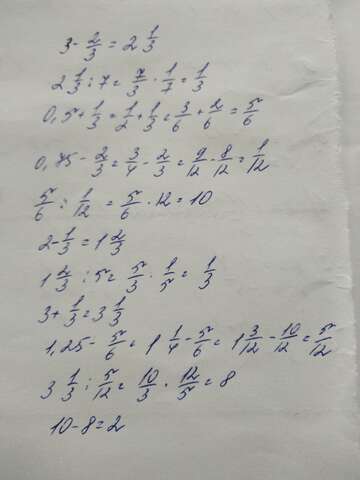 3 - 2/3 = 2 1/3
2 1/3 : 7 = 7/3 · 1/7 = 1/3
0,5 + 1/3 = 1/2 + 1/3 = 3/6 + 2/6 = 5/6
0,75 - 2/3 = 3/4 - 2/3 = 9/12 - 8/12 = 1/12
5/6 : 1/12 = 5/6 · 12 = 10
2 - 1/3 = 1 2/3
1 2/3 : 5 = 5/3 · 1/5 = 1/3
3 + 1/3 = 3 1/3
1,25 - 5/6 = 1 1/4 - 5/6 = 1 3/12 - 10/12 = 5/12
3 1/3 : 5/12 = 10/3 · 12/5 = 8
10 - 8 = 2